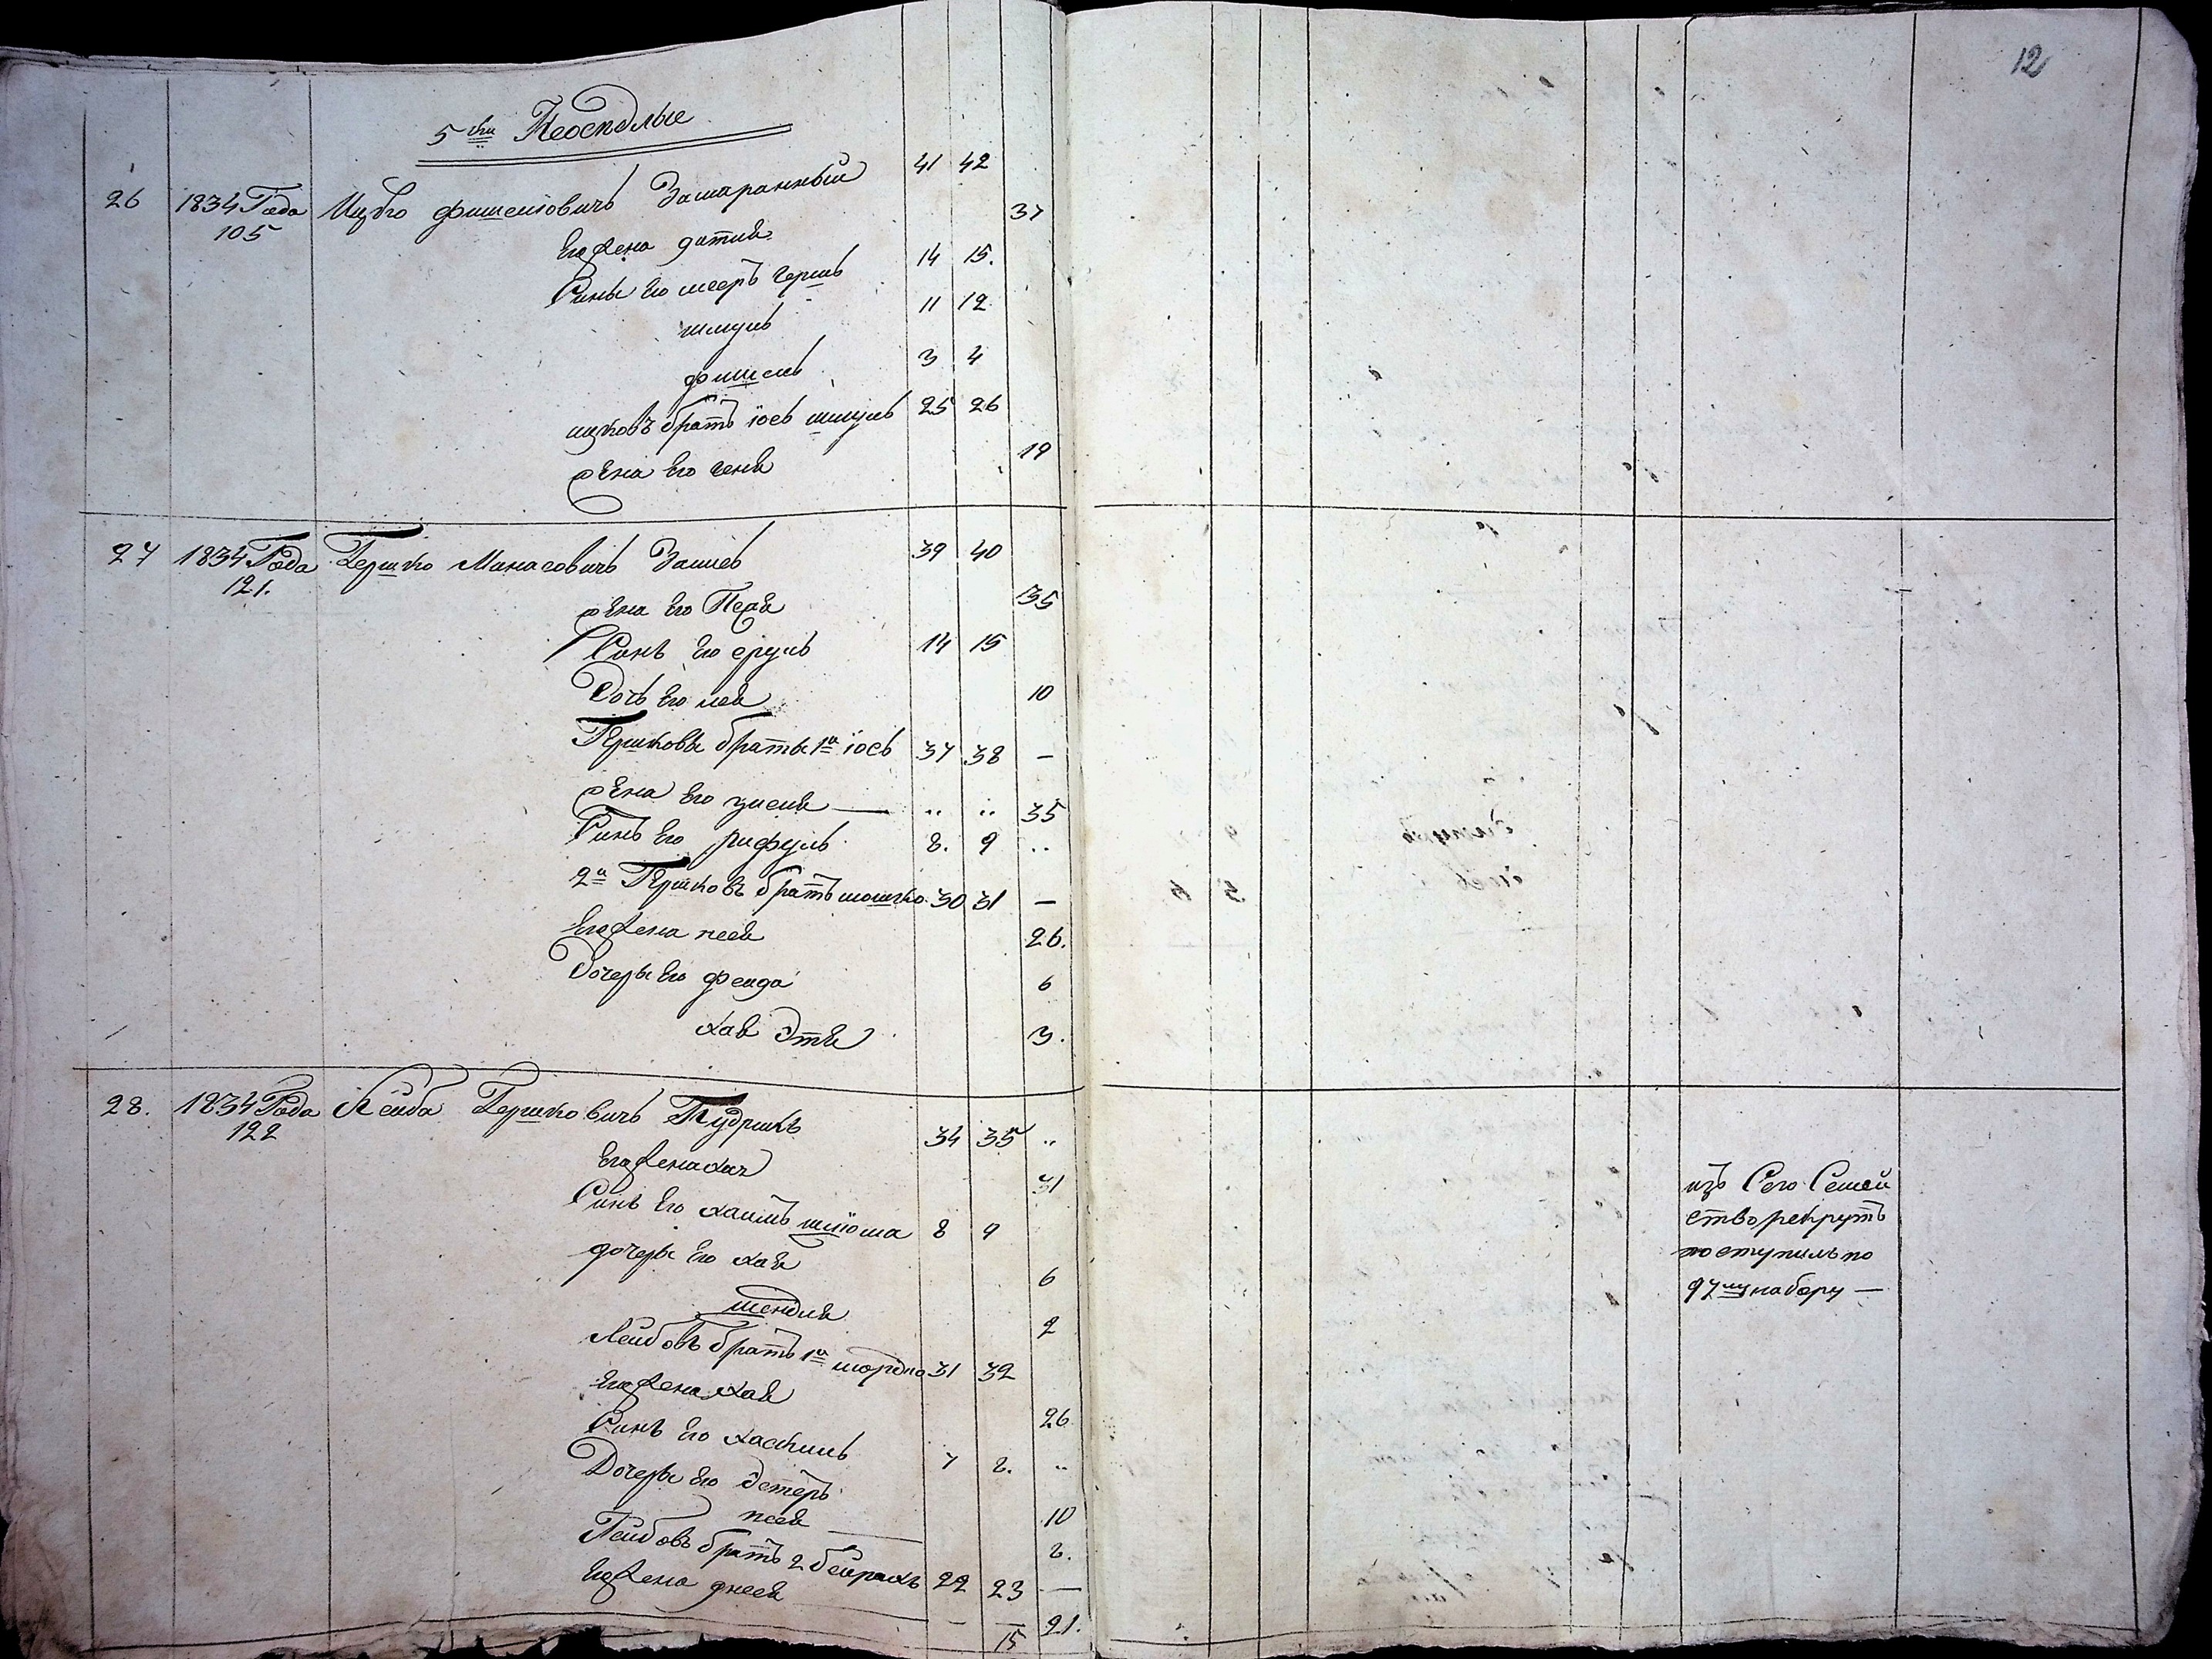 12
5ти Неоседлые
26 1834 Года Ицко фишелiовичь Зашаранный 41 42
105
Его жена 37
Сины Его мееръ гершь 14 15.
шмуль 11 12
фишель 3 4
ицковъ братъ iось шмуль 25 26
жена Его геня 19
27 1834 Года Гершко Манасовичь 39 40
121.
жена Его Перля 35
Синъ Его сруль 14 15
Дочь Его лея 10
Гершковы браты 1й iось 37 38 —
жена Его — .. .. 35
Синъ Его рифуль 8. 9 ..
2й Гершковъ братъ мошко 30 31 —
Его жена песя 26.
Дочеры Его фейда 6
хая Этя 3.
28. 1834 Года Лейба Гершковичь Кудришъ 34 35 ..
122
Его жена 31
Синъ Его хаимъ шлiома 8 9
дочеры Его хая 6
шендля 2
Лейбовъ братъ 1й мордко 31 32
Его жена хая 26
Синъ Его хаскиль 7 8. ..
Дочеры Его Эстеръ 10
песя — 8.
Лейбовъ братъ 2 бейрахъ 22 23 —
Его жена двося 21.
15
изъ Сего Семей
ство рекрутъ
поступилъ по
97му набору —